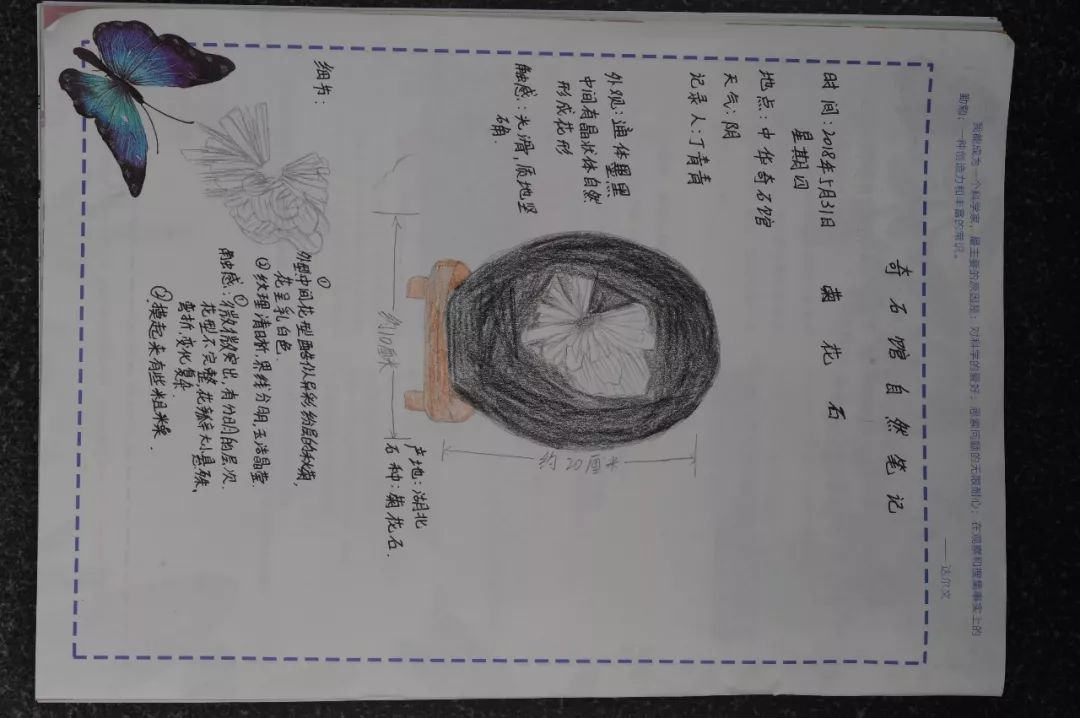 我能成为一个科学家，最主要的原因是：对科学的爱好；思索问题的无限耐心；在观察和搜集事实上的
勤勉；一种创造力和丰富的常识。
—— 达尔文
奇石馆自然笔记
菊花石
时间：2018年5月31日
星期四
地点：中华奇石馆
天气：阴
记录人：丁青青
外观：通体墨黑
中间有晶状体自然
形成花形
触感：光滑，质地坚
硬.
约20厘米
约10厘米
产地：湖北
石种：菊花石.
细节：
①
外型：中间花型酷似异彩纷层的秋菊，
花呈乳白色.
②纹理清晰，界线分明，玉洁晶莹.
触感：①微微突出，有分明的层次.
花型不完整，花瓣大小悬殊，
弯折，变化复杂.
②摸起来有些粗糙.